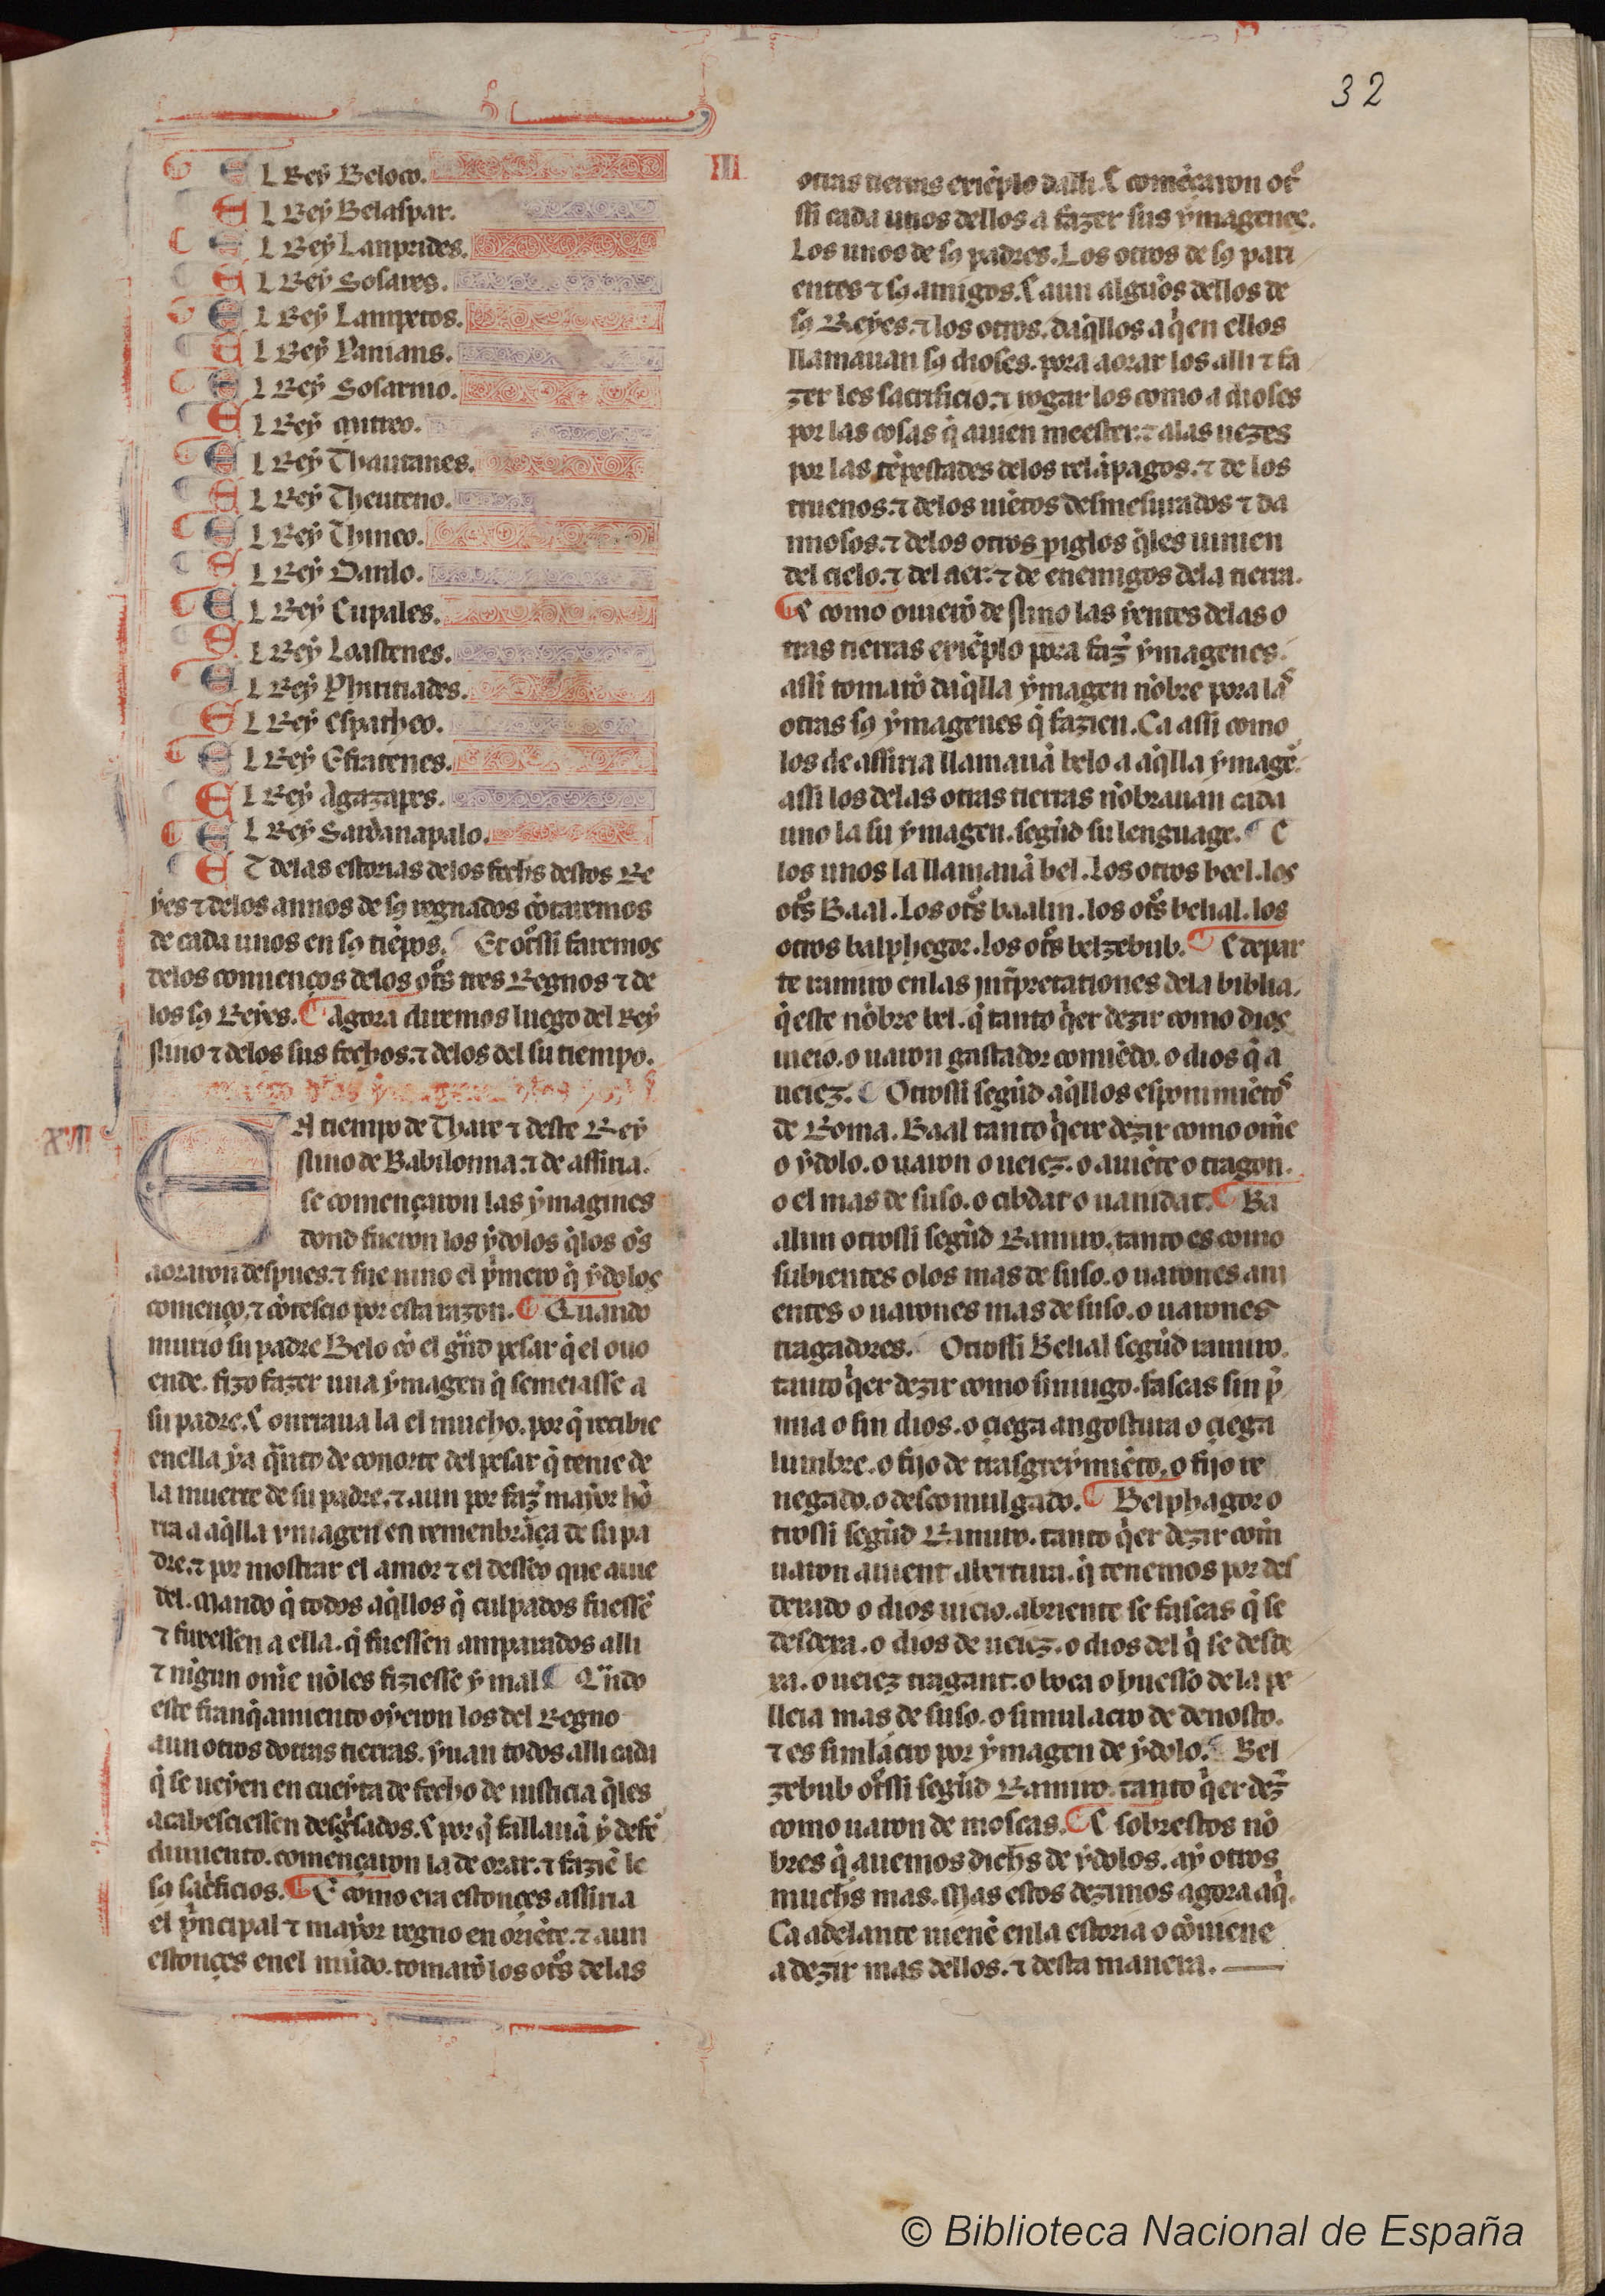 32
III
El Rey Beloco.
El Rey Belaspar.
El Rey Lanprides.
El Rey Sosares.
El Rey Lampetos.
El Rey Panians.
El Rey Sosarmo.
El Rey Mitreo.
El Rey Thautanes.
El Rey Theuteno.
El Rey Thineo.
El Rey Darilo.
El Rey Cupales.
El Rey Loastenes.
El Rey Phiritiades.
El Rey Espatheo.
El Rey Efratenes.
El Rey Agazapes.
El Rey Sardanapalo.
ET delas estorias delos fechs destos Re
yes ⁊ delos annos de sꝯ regnados cõtaremos
de cada unos en sꝯ tiẽpos. ¶ Et otͦssi faremos
delos comienços delos otͦs tres Regnos ⁊ de
los sꝯ Reyes. ¶ Agora diremos luego del Rey
nino ⁊ delos sus fechos. ⁊ delos del su tiempo.
XVII
EN tiempo de Thare ⁊ deste Rey
nino de Babilonna. ⁊ de assiria.
se començaron las ymagines
dond fueron los ydolos q̃los oẽs
aoraron despues. ⁊ fue nino el pⁱmero q̃ ydolos
començo. ⁊ cõtescio por esta razon. ¶ Quando
murio su padre Belo cõ el grãd pesar q̃ el ouo
ende. fizo fazer una ymagen q̃ semeiasse a
su padre. E onrraua la el mucho. por q̃ recibie
enella ya quãto de conorte del pesar q̃ tenie de
la muerte de su padre. ⁊ aun por faz̃ mayor hõ
rra a aq̃lla ymagen en remenbrãça de su pa
dre. ⁊ por mostrar el amor ⁊ el desseo que auie
del. Mando q̃ todos aq̃llos q̃ culpados fuessẽ
⁊ fuyessen a ella. q̃ fuessen amparados alli
⁊ nigun omẽ nõles fiziesse y mal ¶ Quãdo
este franq̃amiento oyeron los del Regno
aun otros dotras tierras. yuan todos alli cada
q̃ se ueyen en cueyta de fecho de iusticia q̃les
acabesciessen desgⁱsados. E por q̃ fallauã y defẽ
dimiento. començaron la de orar. ⁊ faziẽ le
sꝯ sacⁱficios. ¶ E como era estonçes assiria
el pⁱncipal ⁊ mayor regno en oriẽte. ⁊ aun
estonçes enel mũdo. tomarõ los otͦs delas
otras tierras exiẽplo dalli. E comẽçaron otͦ
ssi cada unos dellos a fazer sus ymagenes.
Los unos de sꝯ padres. Los otros de sꝯ pari
entes ⁊ sꝯ amigos. E aun alguõs dellos de
sꝯ Reyes. ⁊ los otros. daq̃llos a qⁱen ellos
llamauan sꝯ dioses. pora aorar los alli ⁊ fa
zer les sacrificio. ⁊ rogar los como a dioses
por las cosas q̃ auien meester. ⁊ alas uezes
por las tẽpestades delos relãpagos. ⁊ de los
truenos. ⁊ delos uiẽtos desmesurados ⁊ da
nnosos. ⁊ delos otros piglos q̃les uinien
del cielo. ⁊ del aer. ⁊ de enemigos dela tierra.
¶ E como ouierõ de nino las yentes delas o
tras tierras exiẽplo pora faz̃ ymagenes.
assi tomarõ daq̃lla ymagen nõbre pora laˢ
otras sꝯ ymagenes q̃ fazien. Ca assi como
los de assiria llamauã belo a aq̃lla ymagẽ.
assi los delas otras tierras nõbrauan cada
uno la su ymagen. segũd su lenguage. ¶ E
los unos la llamauã bel. Los otros beel. los
otͦs Baal. Los otͦs baalin. los otͦs belial. los
otros balphegor. los otͦs belzebub. ¶ E depar
te ramiro enlas inťpretationes dela biblia.
q̃ este nõbre bel. q̃ tanto qⁱer dezir como dios
uieio. o uaron gastador comiẽdo. o dios q̃ a
ueiez. ¶ Otrossi segũd aq̃llos esponimiẽtoˢ
de Roma. Baal tanto qⁱere dezir como omẽ
o ydolo. o uaron o ueiez. o auiẽte o tragon.
o el mas de suso. o cibdat o uanidat. ¶ Ba
alim otrossi segũd Ramiro. tanto es como
subientes o los mas de suso. o uarones aui
entes o uarones mas de suso. o uarones
tragadores. ¶ Otrossi Belial segũd ramiro.
tanto qⁱer dezir como sin iugo. fascas sin pⁱ
mia o sin dios. o çiega angostura o çiega
lumbre. o fijo de trasgreymiẽto. o fijo re
negado. o descomulgado. ¶ Belphagor o
trossi segũd Ramiro. tanto qⁱer dezir com̃
uaron auient abertura. q̃ tenemos por des
derado o dios uieio. abriente se fascas q̃ se
desdera. o dios de ueiez. o dios del q̃ se desde
ra. o ueiez tragant. o boca o huesso de la pe
lleia mas de suso. o simulacro de denosto.
⁊ es simlacro por ymagen de ydolo. ¶ Bel
zebub otͦssi segũd Ramiro. tanto qⁱer dez̃
como uaron de moscas. ¶ E sobrestos nõ
bres q̃ auemos dichs de ydolos. ay otros
muchs mas. Mas estos dezimos agora aq̃.
Ca adelante uienẽ enla estoria o cõuiene
a dezir mas dellos. ⁊ desta manera.
© Biblioteca Nacional de España